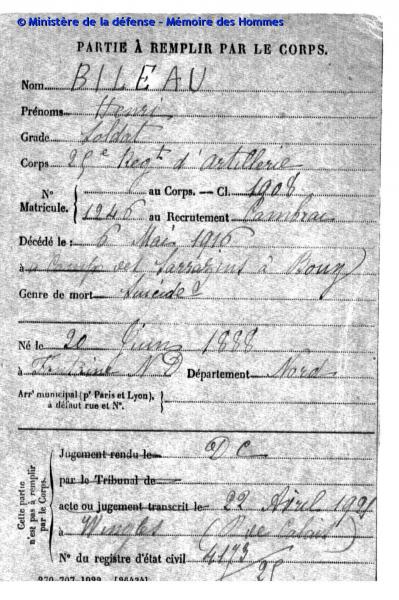 © Ministère de la défense - Mémoire des Hommes
PARTIE À REMPLIR PAR LE CORPS.
Nom BILEAU
Prénoms Henri
Grade Soldat
Corps 25e Regt d'artillerie
N° Matricule. { au Corps. — Cl. 1908
1246 au Recrutement Cambrai
Décédé le : 8 Mai 1916
à des Sarrazins à Bouzy
Genre de mort Suicidé
Né le 20 Juin 1888
à ND Département Nord
Arrt municipal (pr Paris et Lyon),
à défaut rue et N°.
Cette partie n'est pas à remplir par le Corps.
Jugement rendu le DC
par le Tribunal de
acte ou jugement transcrit le 22 Avril 1921
à Wingles (Pas Calais)
N° du registre d'état civil 4173/25